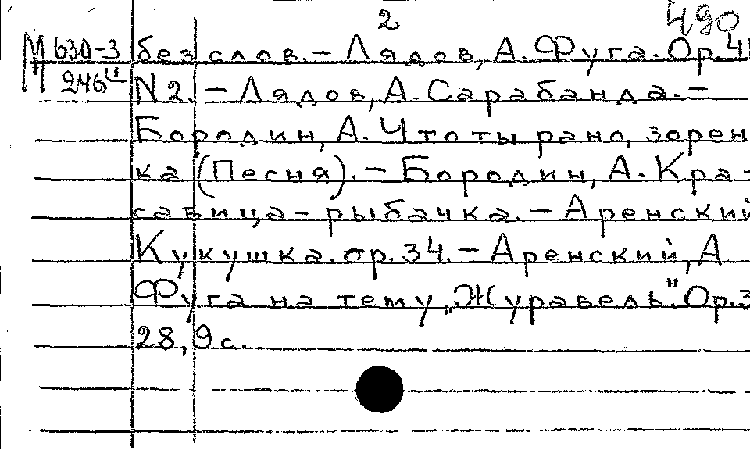 2
490
М 630-3
246
без слов. – Лядов, А. Фуга. Ор. 41
N 2. – Лядов, А. Сарабанда. –
Бородин, А. Что ты рано, зорень
ка (Песня). – Бородин, А. Кра-
савица-рыбачка. – Аренский
Кукушка. ор. 34. – Аренский, А
Фуга на тему „Журавель" Ор. 3
28, 9 с.